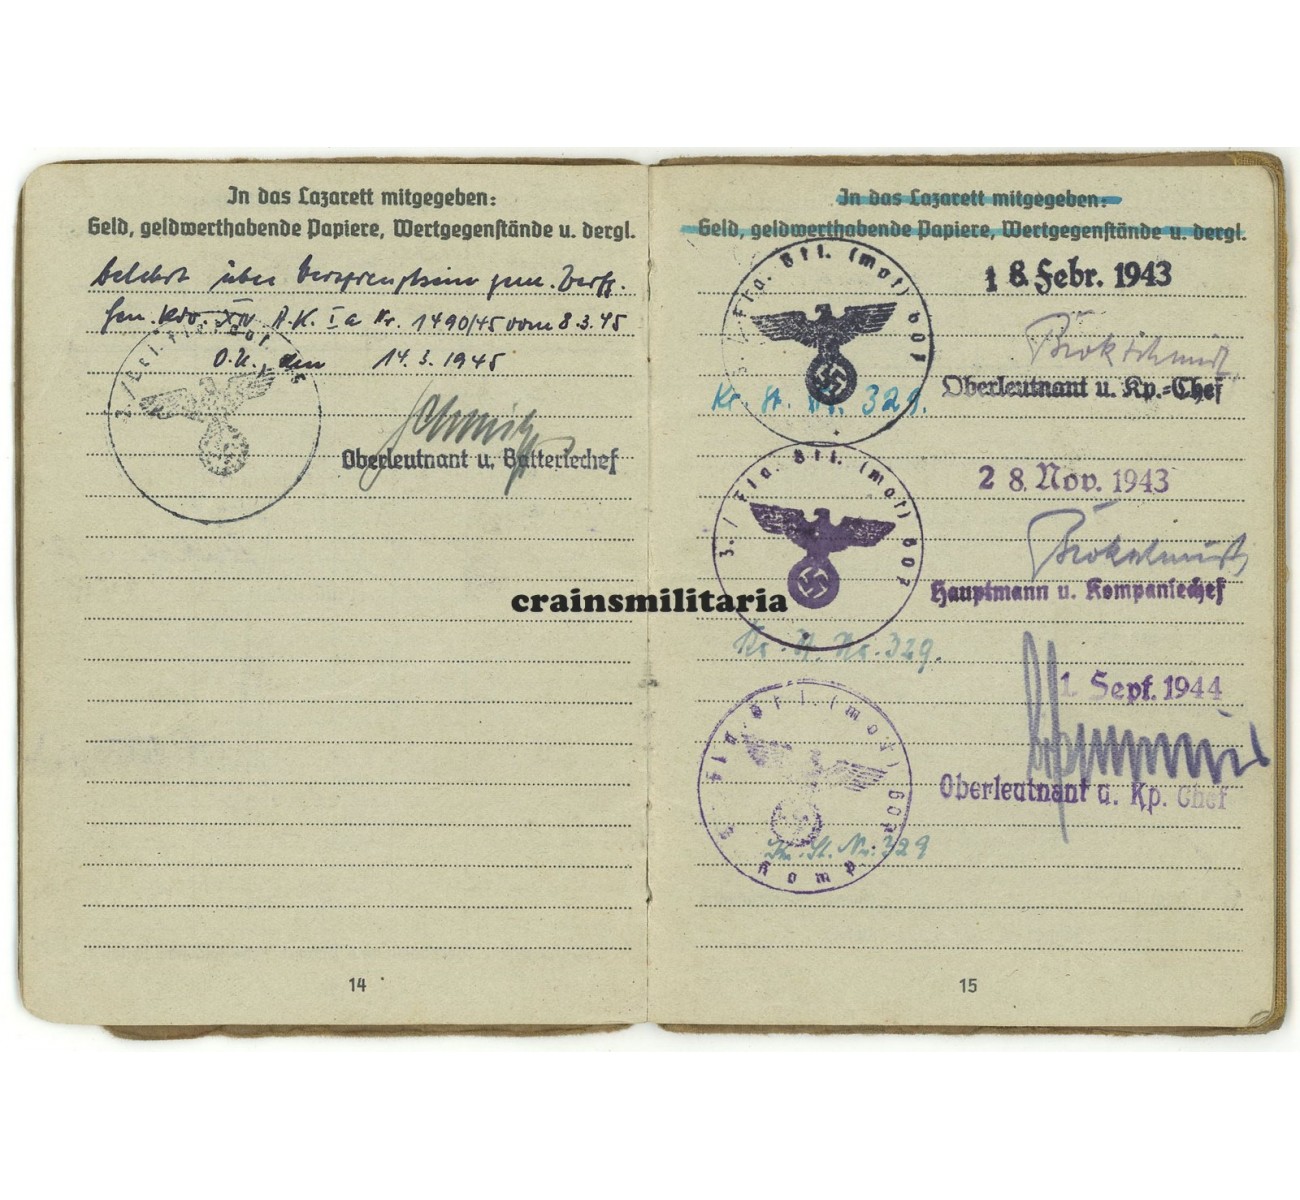 In das Lazarett mitgegeben:
Geld, geldwerthabende Papiere, Wertgegenstände u. dergl.
belehrt über Versprengtsein gem. Verff.
Gen. Kdo. XIV A.K. Ia Nr. 1490/45 vom 8.3.45
O.U., den 14.3.1945
Oberleutnant u. Batteriechef
14
In das Lazarett mitgegeben:
Geld, geldwerthabende Papiere, Wertgegenstände u. dergl.
3./Fla. Btl. (mot) 607
18. Febr. 1943
Oberleutnant u. Kp.=Chef
Kr. St. Nr. 329.
3./Fla. Btl. (mot) 607
28. Nov. 1943
Hauptmann u. Kompaniechef
Kr. St. Nr. 329.
crainsmilitaria
Fla. Btl. (mot) 607
Komp
1. Sept. 1944
Oberleutnant u. Kp. Chef
Kr. St. Nr. 329
15